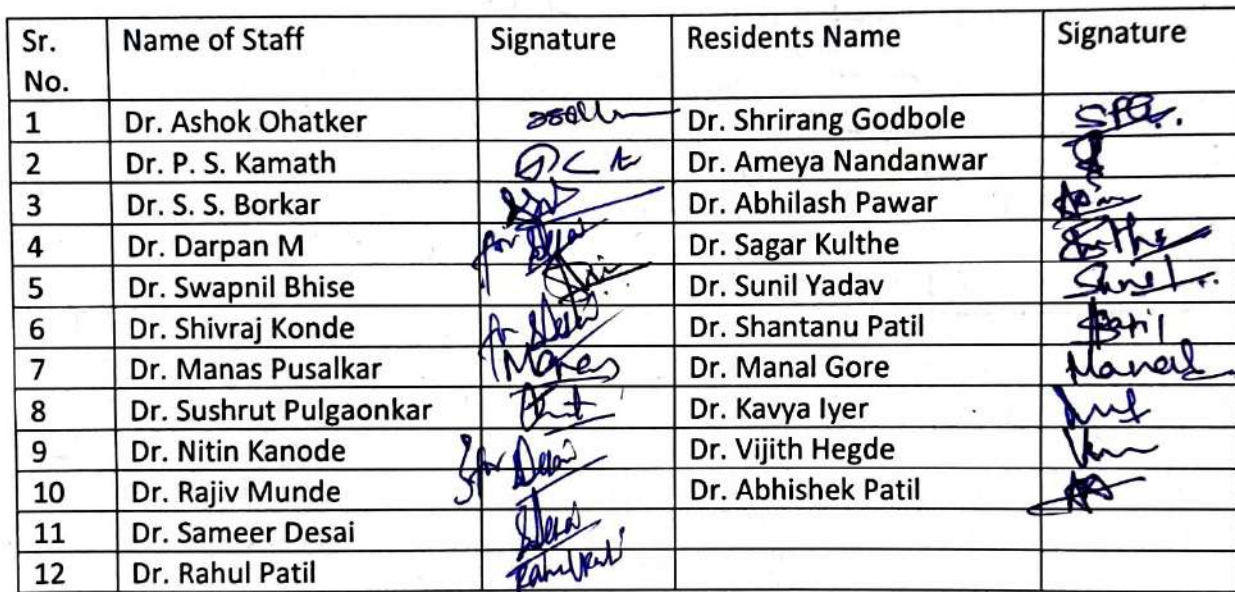 Sr. No. Name of Staff Signature Residents Name Signature
1 Dr. Ashok Ohatker Dr. Shrirang Godbole
2 Dr. P. S. Kamath Dr. Ameya Nandanwar
3 Dr. S. S. Borkar Dr. Abhilash Pawar
4 Dr. Darpan M for Desai Dr. Sagar Kulthe
5 Dr. Swapnil Bhise Dr. Sunil Yadav
6 Dr. Shivraj Konde for Desai Dr. Shantanu Patil Patil
7 Dr. Manas Pusalkar Manas Dr. Manal Gore Manal
8 Dr. Sushrut Pulgaonkar Dr. Kavya Iyer
9 Dr. Nitin Kanode for Desai Dr. Vijith Hegde
10 Dr. Rajiv Munde Dr. Abhishek Patil
11 Dr. Sameer Desai Desai
12 Dr. Rahul Patil